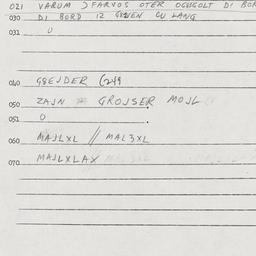 021 VARUM ) FARVOS OTER OGUGOLT DI BOR
030 DI BORD IZ GEVEN CU LANG
031 U
040 GSEJDER (249
050 ZAJN GROJSER MOJL
051 O
060 MAJLXL // MAL3XL
070 MAJLXLAX